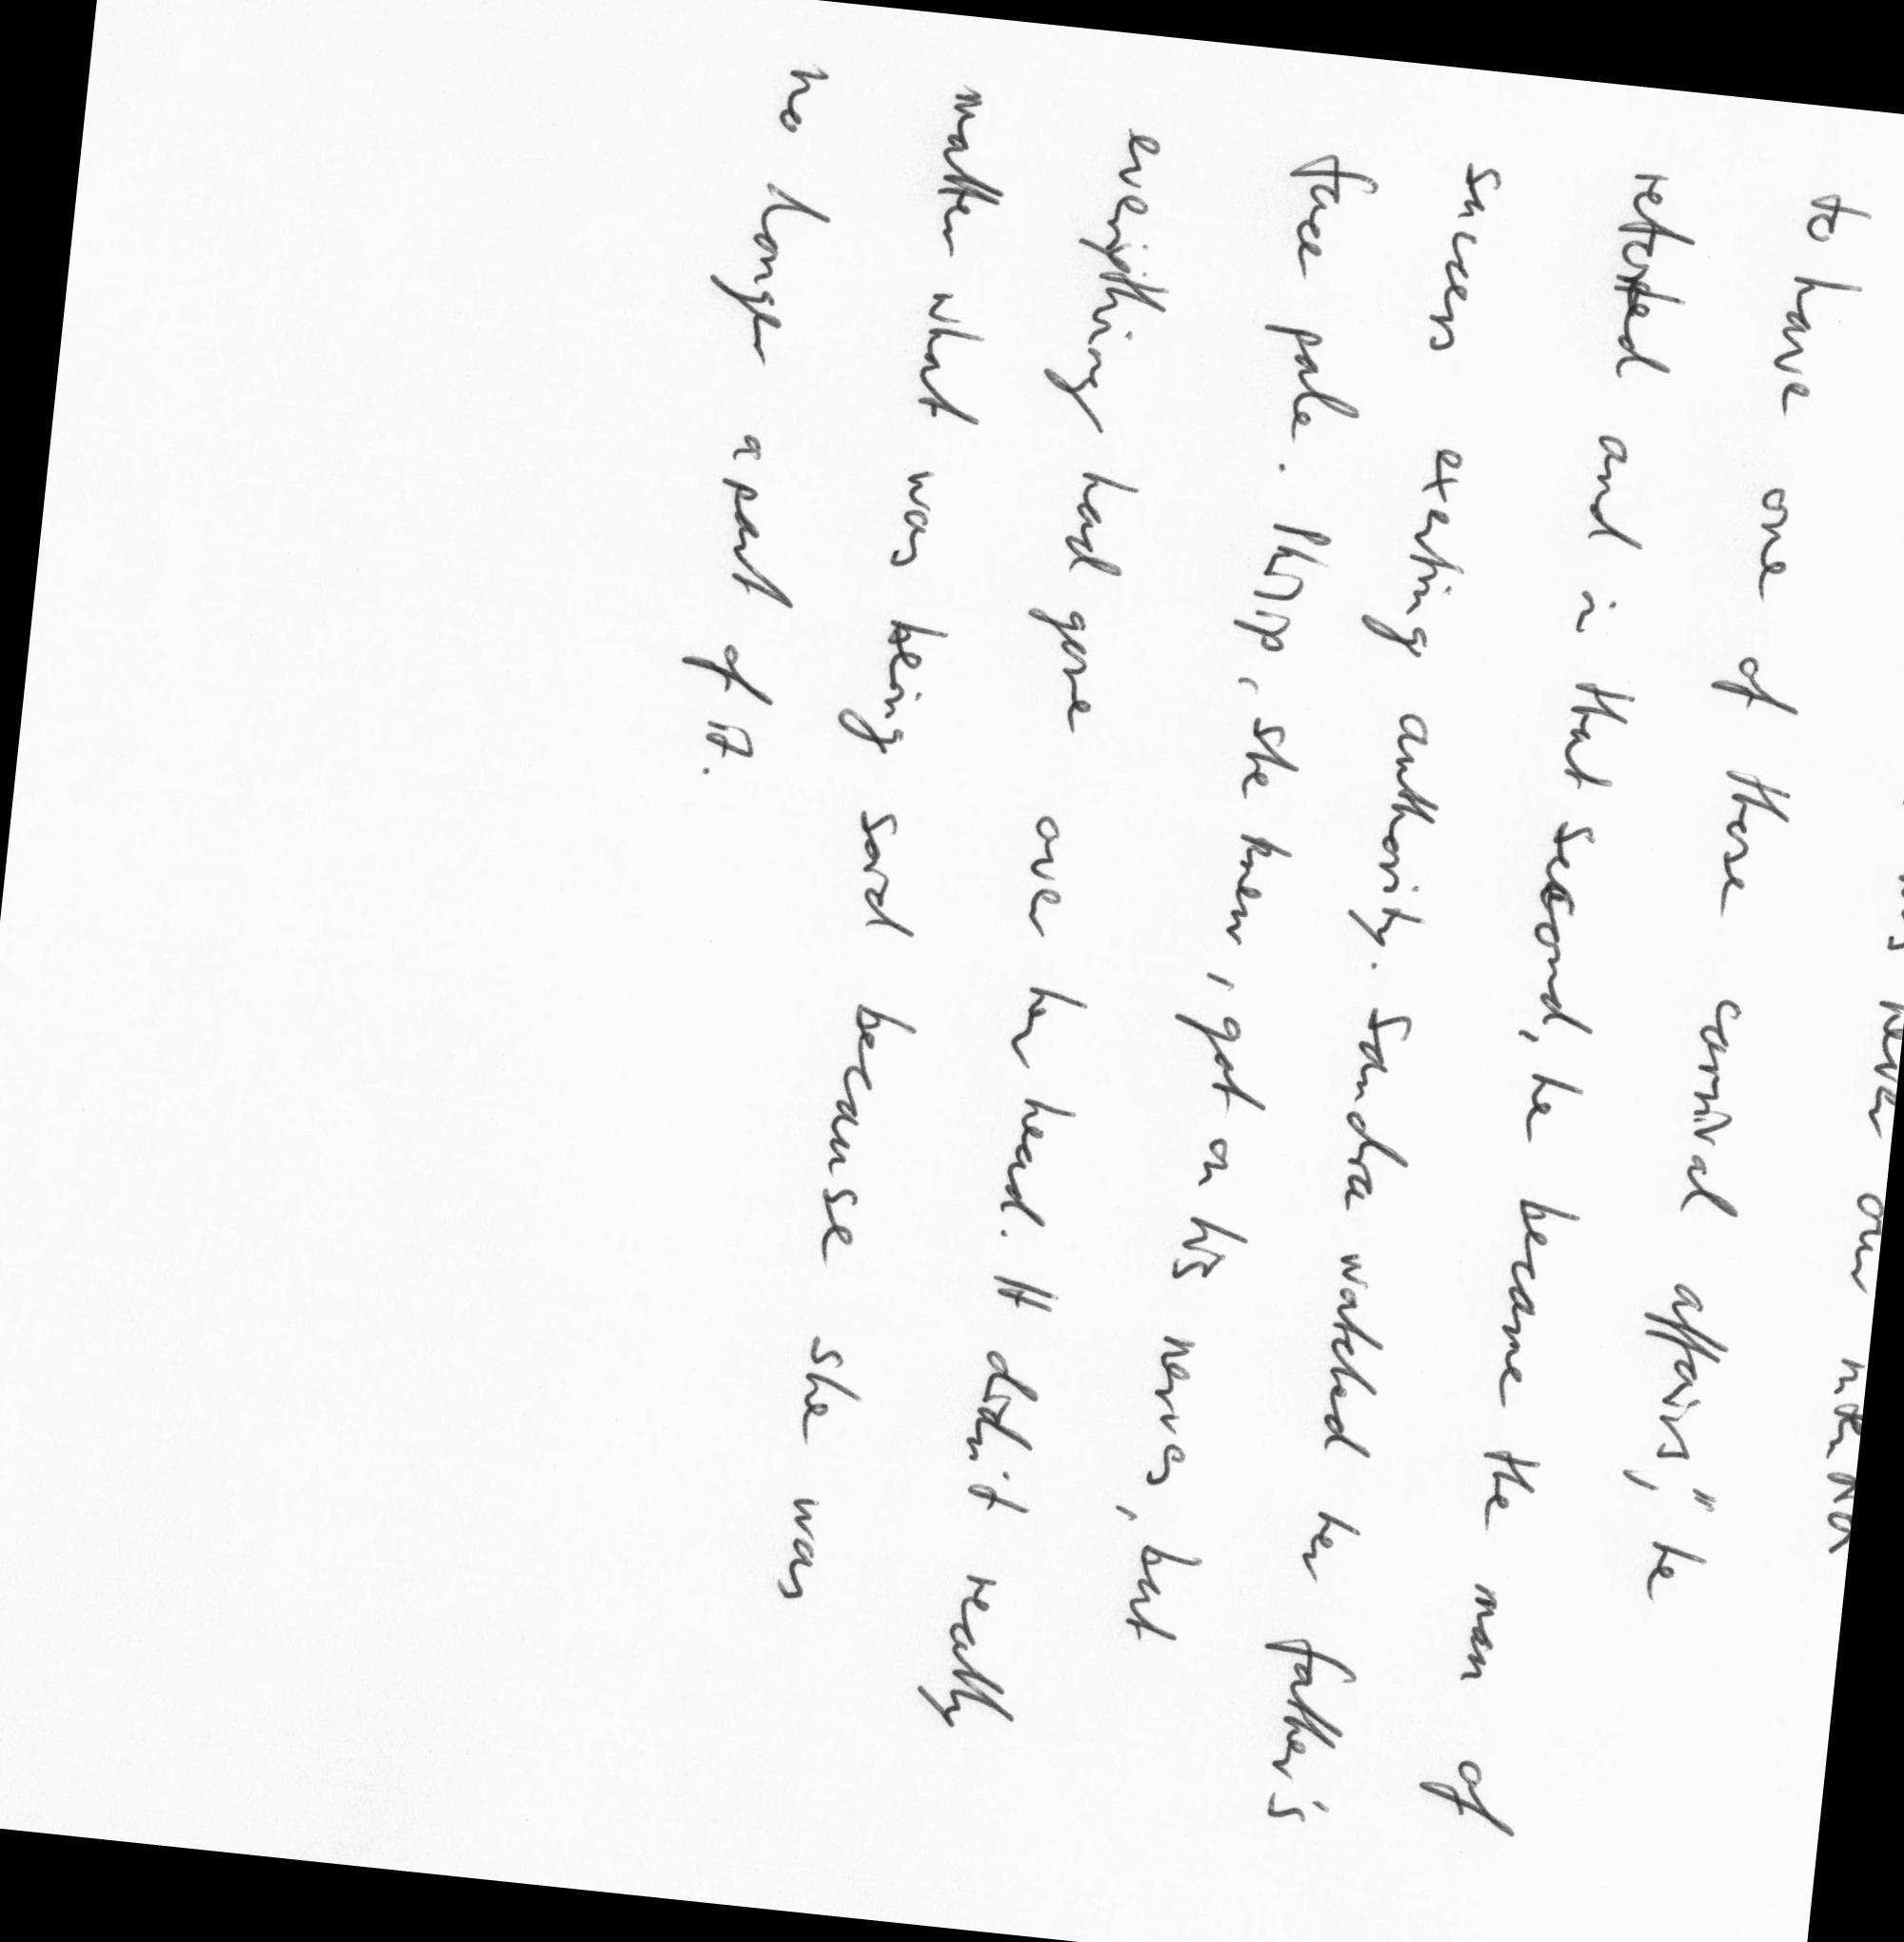 never our
to have one of those carnival affairs," he
retorted and in that second, he became the man of
success exerting authority. Sandra watched her father's
face pale. Philip, she knew, got on his nerves, but
everything had gone over her head. It didn't really
matter what was being said because she was
no longer a part of it.